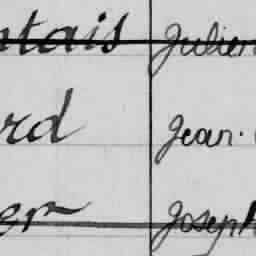 ntais Julien
rd Jean.
er Joseph